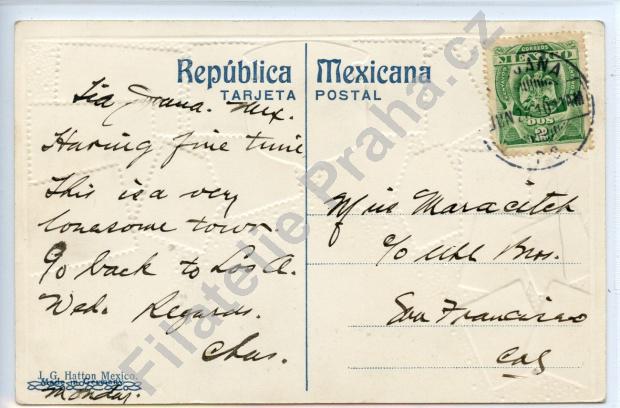 República Mexicana
TARJETA POSTAL
CORREOS
MEXICO
DOS
2
JANA
Tia Juana. Mex.
Having fine time
This is a very
lonesome town.
Go back to Los A.
Wed. Regards.
Chas.
Monday.
Miss
c/o Uhl Bros.
San Francisco
Cal
J. G. Hatton Mexico.
Made in Germany
Filatelie Praha.cz